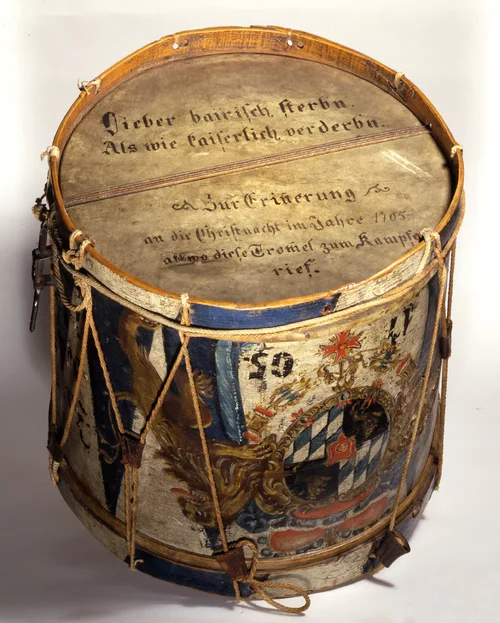 Lieber bairisch sterbn.
Als wie kaiserlich verderbn.
Zur Erinerung
an die Christnacht im Jahre 1705.
allwo diese Tromel zum Kampfe
rief.
17
05